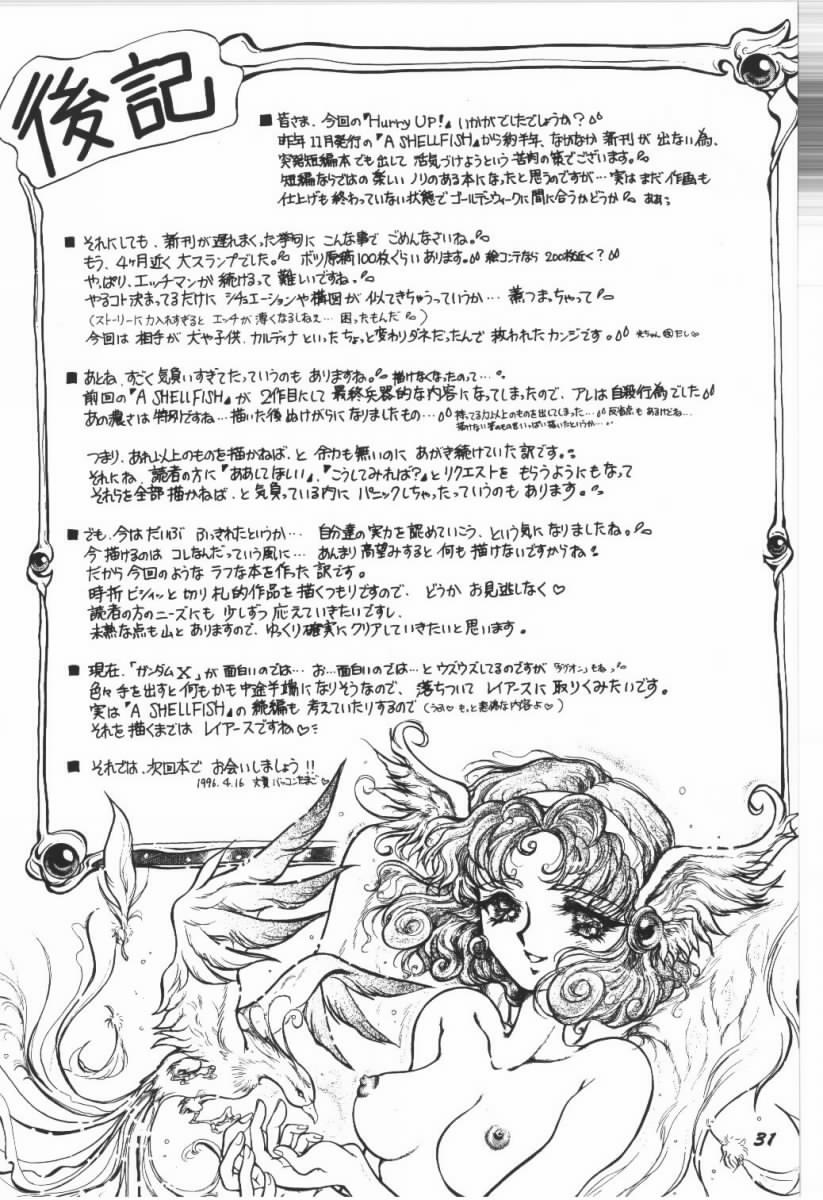 後記
■ 皆さま、今回の『Hurry UP!』いかがでしたでしょうか?
昨年11月発行の『A SHELLFISH』から約半年、なかなか新刊が出ない為、
突発短編本でも出して 活気づけようという 苦肉の策でございます。
短編ならではの楽しい ノリのある本になったと思うのですが…実は まだ 作画も
仕上げも終わっていない状態で ゴールデンウィークに間に合うかどうか。ああ
■ それにしても、新刊が遅れまくった挙句に こんな事で ごめんなさいね。
もう、4ヶ月近く 大スランプでした。 ボツ原稿100枚ぐらいあります。絵コンテなら 200枚近く?
やっぱり、エッチマンが 続けるって 難しいですね。
やるコト決まってるだけに シチュエーションや構図が 似てきちゃうっていうか… 煮つまっちゃって
(ストーリーに力入れすぎると エッチが薄くなるしねェ… 困ったもんだ)
今回は 相手が 犬や子供、カルディナといった ちょっと変わりダネだったんで 救われたカンジです。
■ あとね、すごく気負いすぎてたっていうのも ありますね。描けなくなったのって…
前回の『A SHELLFISH』が 2作目にして 最終兵器的な内容になってしまったので、アレは自殺行為でした
あの濃さは特別ですね…描いた後 ぬけがらになりましたもの… 持ってる力以上のものを出してしまった… 反省点もあるけどね…
つまり、あれ以上のものを描かねば、と 余力も無いのに あがき続けていた訳です。
それにね、読者の方に『ああしてほしい』、『こうしてみれば?』とリクエストを もらうようにもなって
それらを全部描かねば、と気負っている内に パニックしちゃったっていうのも あります。
■ でも、今は だいぶ ふっきれたというか… 自分達の実力を認めていこう、という気になりましたね。
今 描けるのは コレなんだっていう風に… あんまり高望みすると 何も描けないですからね
だから 今回のような ラフな本を作った 訳です。
時折 ビシィッと 切り札的作品を 描くつもりですので、どうか お見逃しなく♡
読者の方のニーズにも 少しずつ 応えていきたいですし、
未熟な点も 山と ありますので、ゆっくり確実に クリアしていきたいと思います。
■ 現在、「ガンダムX」が 面白いのでは… お…面白いのでは…と ウズウズしてるのですが
色々手を出すと 何もかも中途半端になりそうなので、落ちついて レイアースに 取りくみたいです。
実は『A SHELLFISH』の続編も 考えていたりするので (うふ♡ もっと悪辣な内容よ♡)
それを描くまでは レイアースですね♡
■ それでは、次回本で お会いしましょう!!
1996.4.16
31